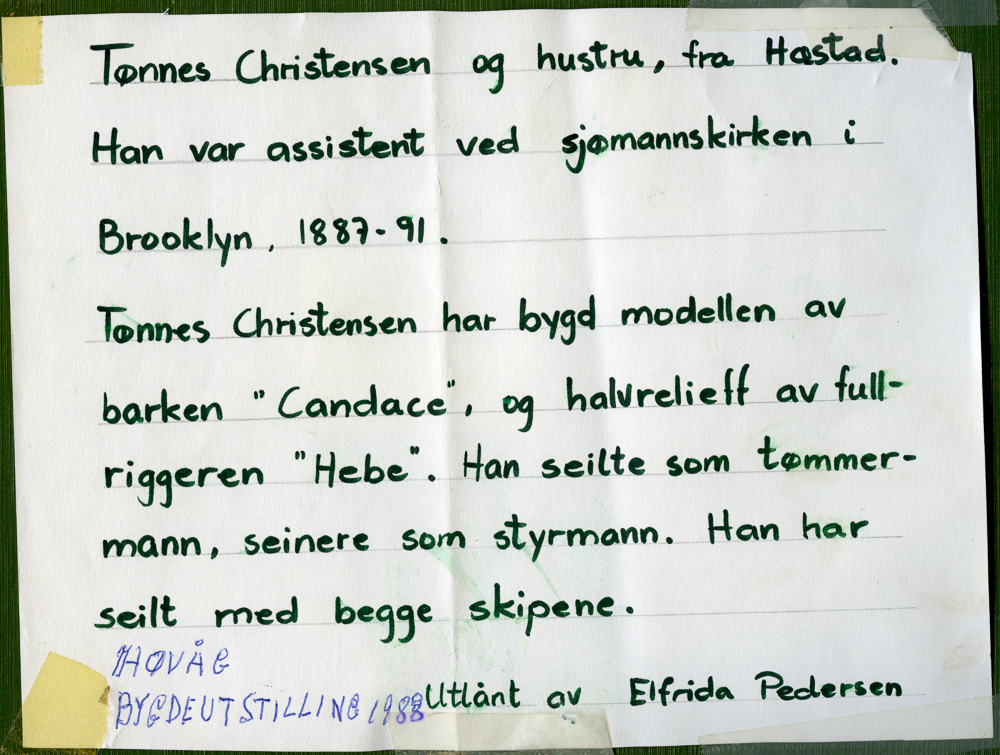 Tønnes Christensen og hustru, fra Hæstad.
Han var assistent ved sjømannskirken i
Brooklyn, 1887-91.
Tønnes Christensen har bygd modellen av
barken "Candace", og halvrelieff av full-
riggeren "Hebe". Han seilte som tømmer-
mann, seinere som styrmann. Han har
seilt med begge skipene.
HØVÅG
BYGDEUTSTILLING 1988
Utlånt av Elfrida Pedersen